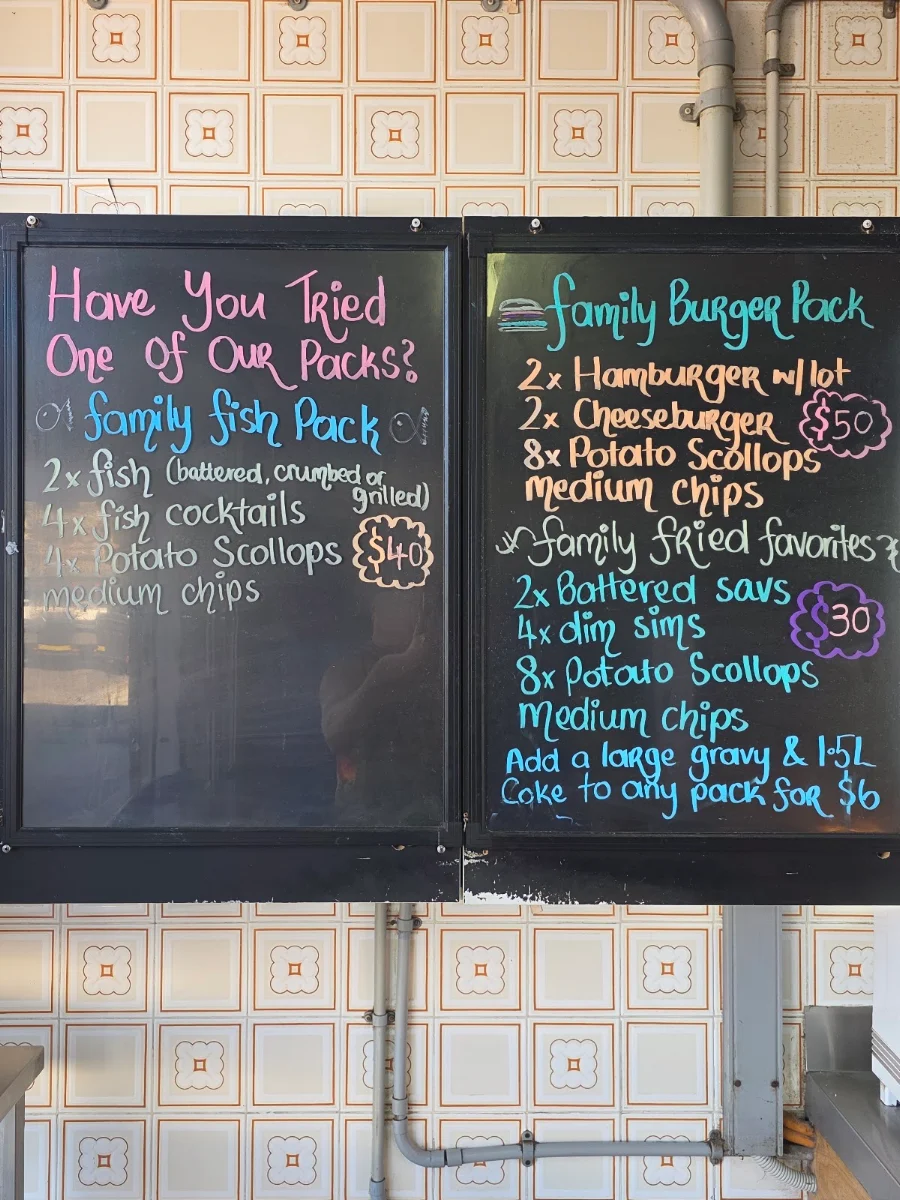 Have You Tried
One Of Our Packs?
family fish Pack
2x fish (battered, crumbed or
grilled)
4x fish cocktails
4x Potato Scollops
$40
medium chips
family Burger Pack
2x Hamburger w/lot
2x Cheeseburger
$50
8x Potato Scollops
medium chips
family fried favorites
2x Battered savs
4x dim sims
$30
8x Potato Scollops
Medium chips
Add a large gravy & 1.5L
Coke to any pack for $6